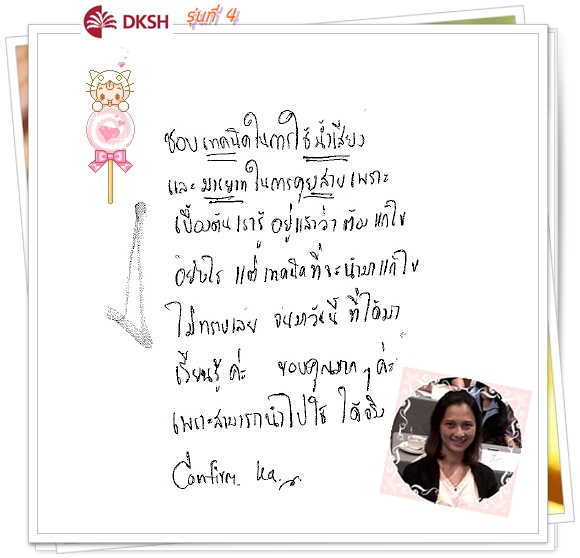 DKSH รุ่นที่ 4
ชอบเทคนิคในการใช้น้ำเสียง
และมารยาทในการคุยสายเพราะ
เบื้องต้นเรารู้อยู่แล้วว่าต้องแก้ไข
อย่างไร แต่เทคนิคที่จะนำมาแก้ไข
ไม่ทราบเลย จนมาวันนี้ ที่ได้มา
เรียนรู้ค่ะ ขอบคุณมากๆค่ะ
เพราะสามารถนำไปใช้ได้จริง
Confirm. ka.